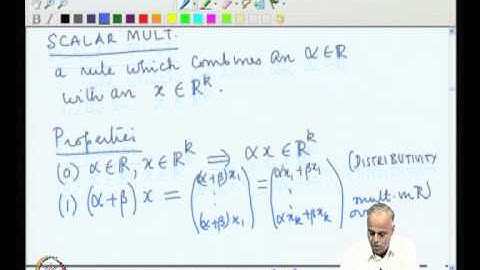 SCALAR MULT.
a rule which combines an α∈ℝ
with an x ∈ ℝᵏ.
Properties
(0) α∈ℝ, x∈ℝᵏ ⟹ αx ∈ ℝᵏ
(1) (α+β) x = ((α+β)x₁ ⋮ (α+β)x₁) = (αx₁+βx₁ ⋮ αxₖ+βxₖ) (DISTRIBUTIVITY
mult. in ℝ)